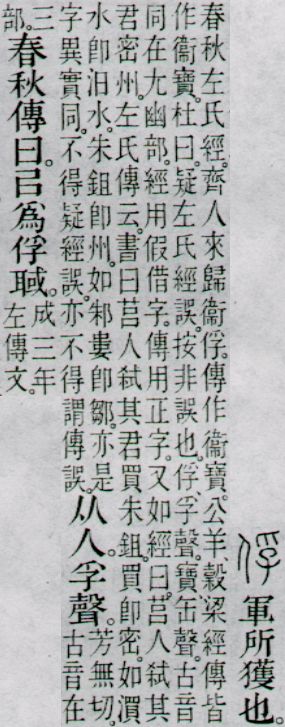 俘軍所獲也。
春秋左氏經。齊人來歸衞俘。傳作衞寶。公羊、穀梁經傳皆
作衞寶。杜曰。疑左氏經誤。按非誤也。俘、孚聲。寶、缶聲。古音
同在尤幽部。經用假借字。傳用正字。又如經曰。莒人弑其
君密州。左氏傳云。書曰莒人弑其君買朱鉏。買卽密。如湏
水卽汨水。朱鉏卽州。如邾婁卽鄒。亦是
字異實同。不得疑經誤。亦不得謂傳誤。
从人。孚聲。
芳無切。
古音在
三
部。
春秋傳曰。㠯爲俘聝。
成三年
左傳文。